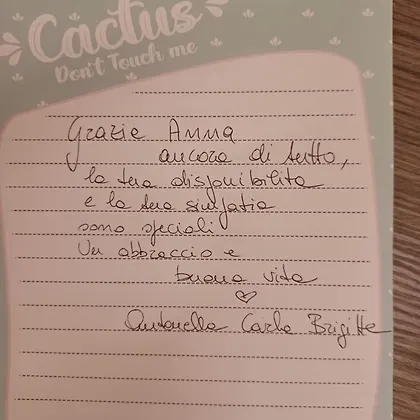 Cactus
Don't Touch me
Grazie Anna
ancora di tutto,
la tua disponibilita
e la tua simpatia
sono speciali
Un abbraccio e
buona vita
Antonella Carla Brigitte